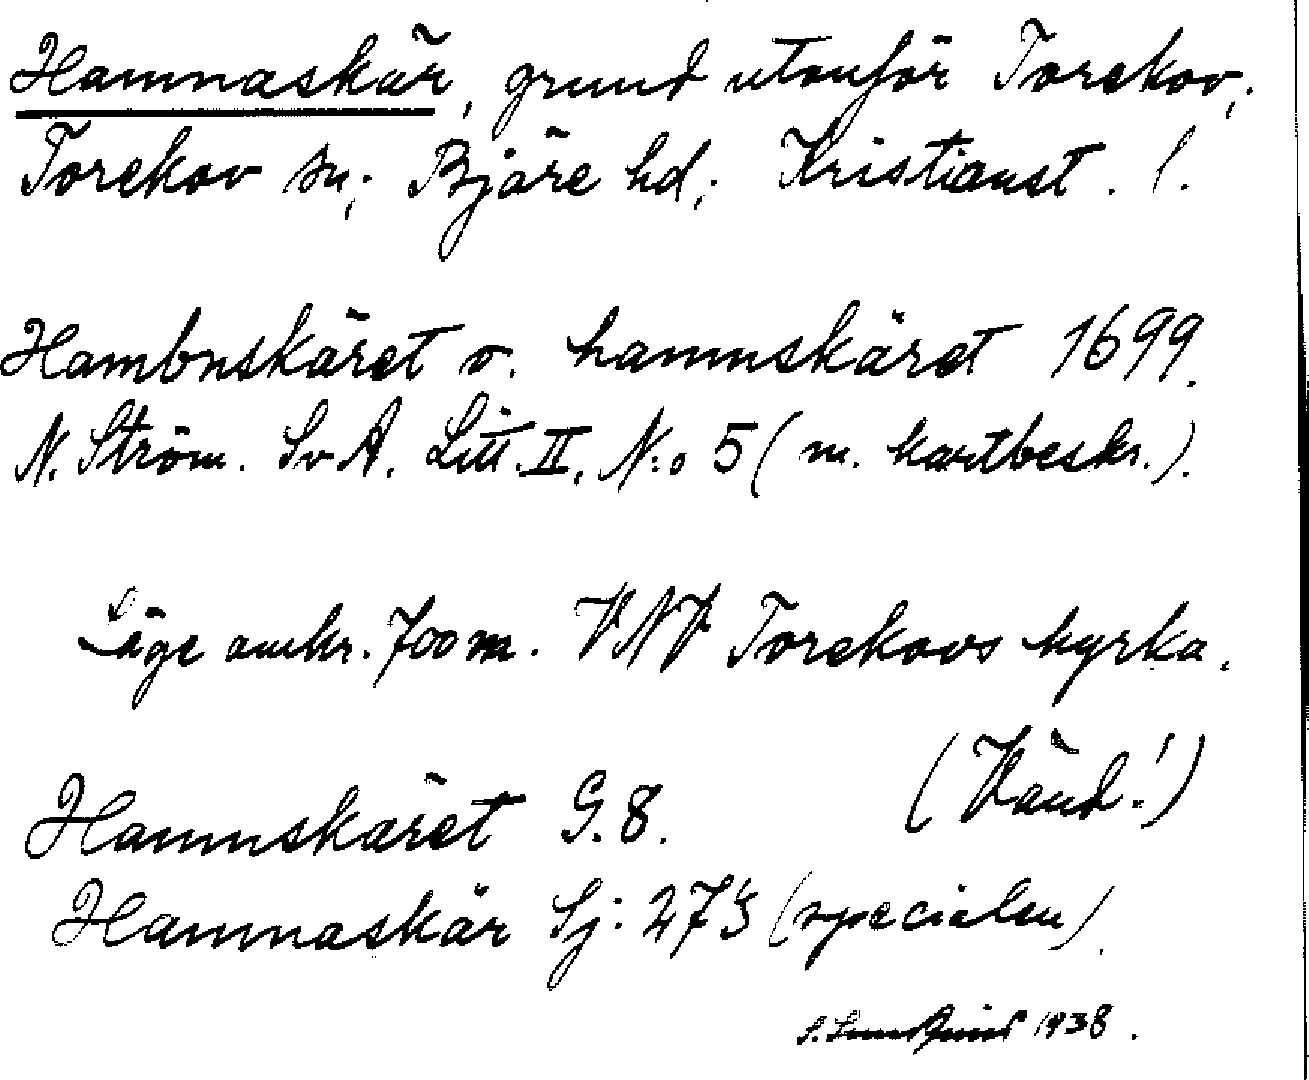 Hamnaskär, grund utanför Torekov,
Torekov sn; Bjäre hd; Kristianst. l.
Hambnskäret o. hamnskäret 1699.
N. Ström. Sv A. Litt. II. N:o 5 (m. kartbeskr.).
Läge omkr. 700 m. VNV Torekovs kyrka.
(Vänd!)
Hamnskäret G. 8.
Hamnaskär Sj: 273 (specialen).
1938.